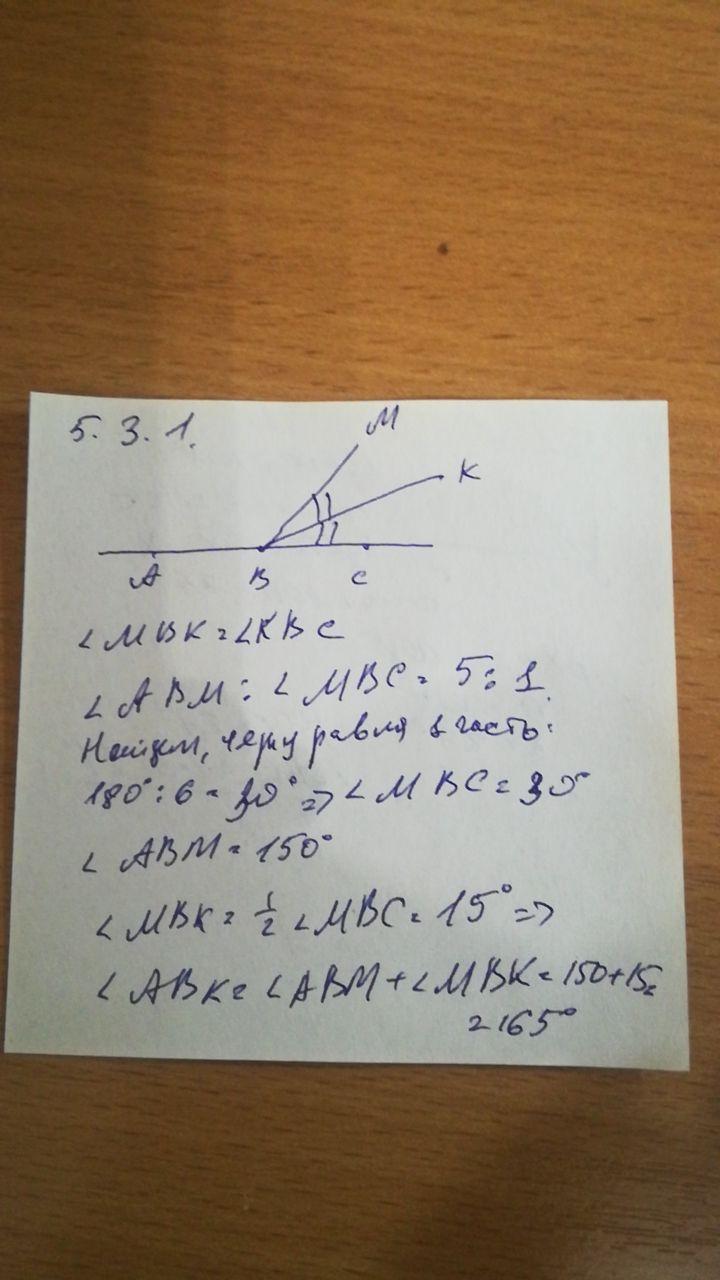 5.3.1.
M
K
A B C
∠MBK=∠KBC
∠ABM:∠MBC=5:1.
Найдем, чему равна 1 часть:
180°:6=30°=>∠MBC=30°
∠ABM=150°
∠MBK=1/2∠MBC=15°=>
∠ABK=∠ABM+∠MBK=150+15=
=165°